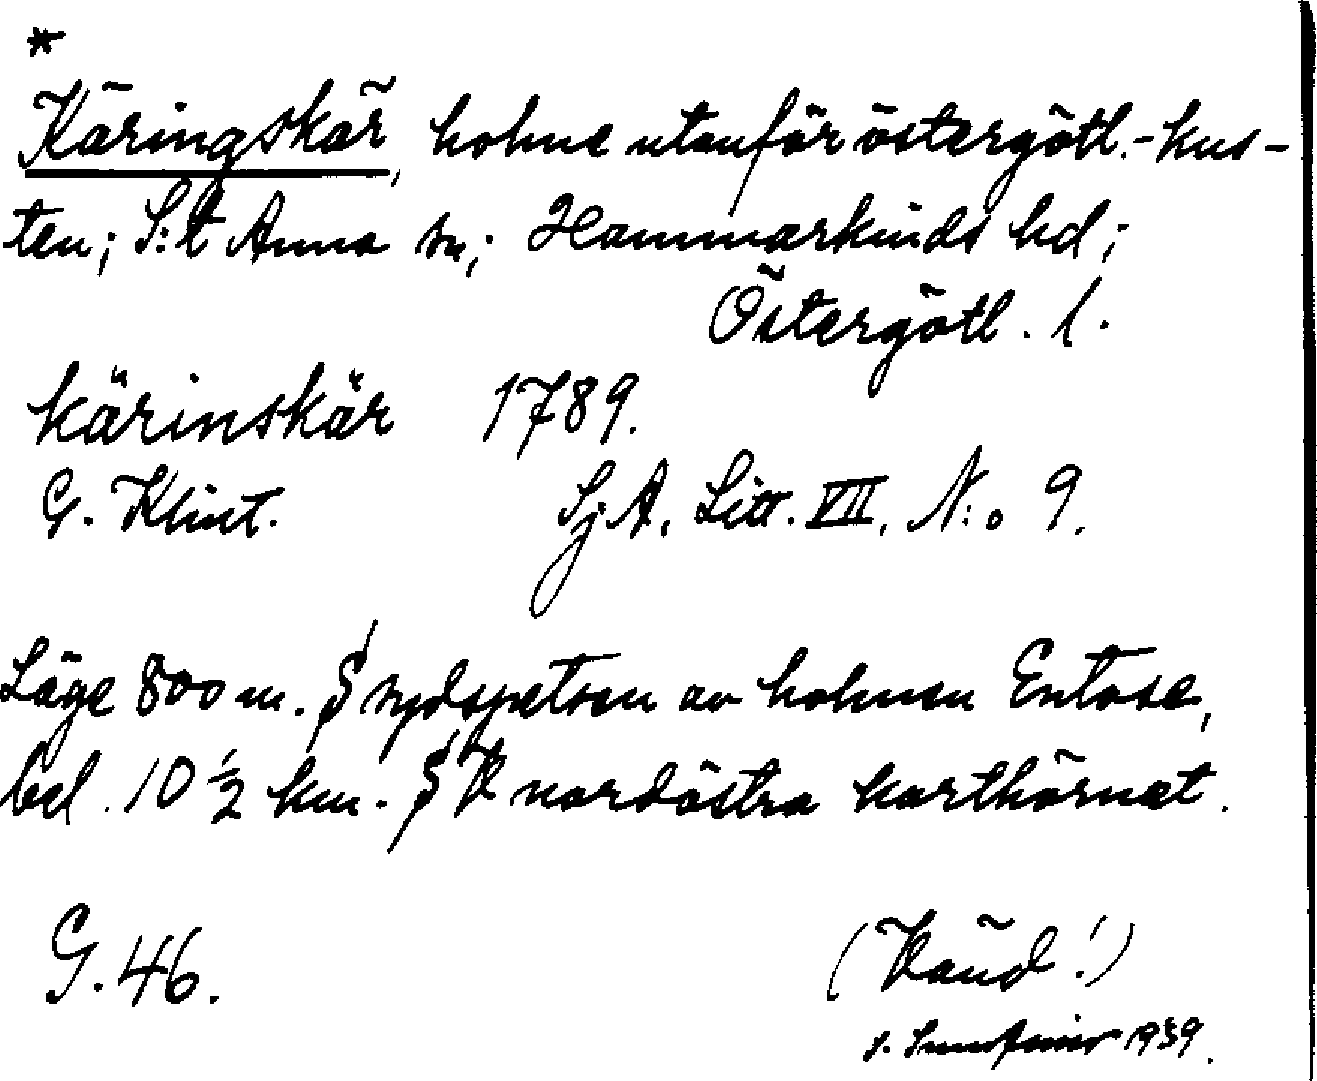 *
Käringskär, holme utanför östergötl.-kus-
ten; S:t Anna sn; Hammarkinds hd;
Östergötl. l.
Kärinskär 1789.
G. Klint. Sj. A. Litt. VII. N:o 9.
Läge 800 m. S sydspetsen av holmen Entose,
bel. 10 ½ km. S V nordöstra karthörnet.
G. 46. (Känd!)
1939.